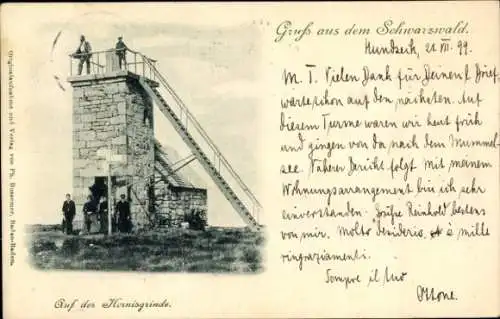 Gruß aus dem Schwarzwald.
Hundseck, 21 VII. 99.
M. T. Vielen Dank für Deinen Brief
warte schon auf den nächsten. Auf
diesem Turme waren wir heut früh
und gingen von da nach dem Mummel-
see. Näherer Bericht folgt mit meinem
Wohnungsarrangement bin ich sehr
einverstanden. Grüße Reinhold bestens
von mir. Molto desiderio e mille
ringraziamenti.
Sempre il tuo
Ottone.
Auf der Hornisgrinde.
Originalaufnahme und Verlag von Ph. Bussemer, Baden-Baden.